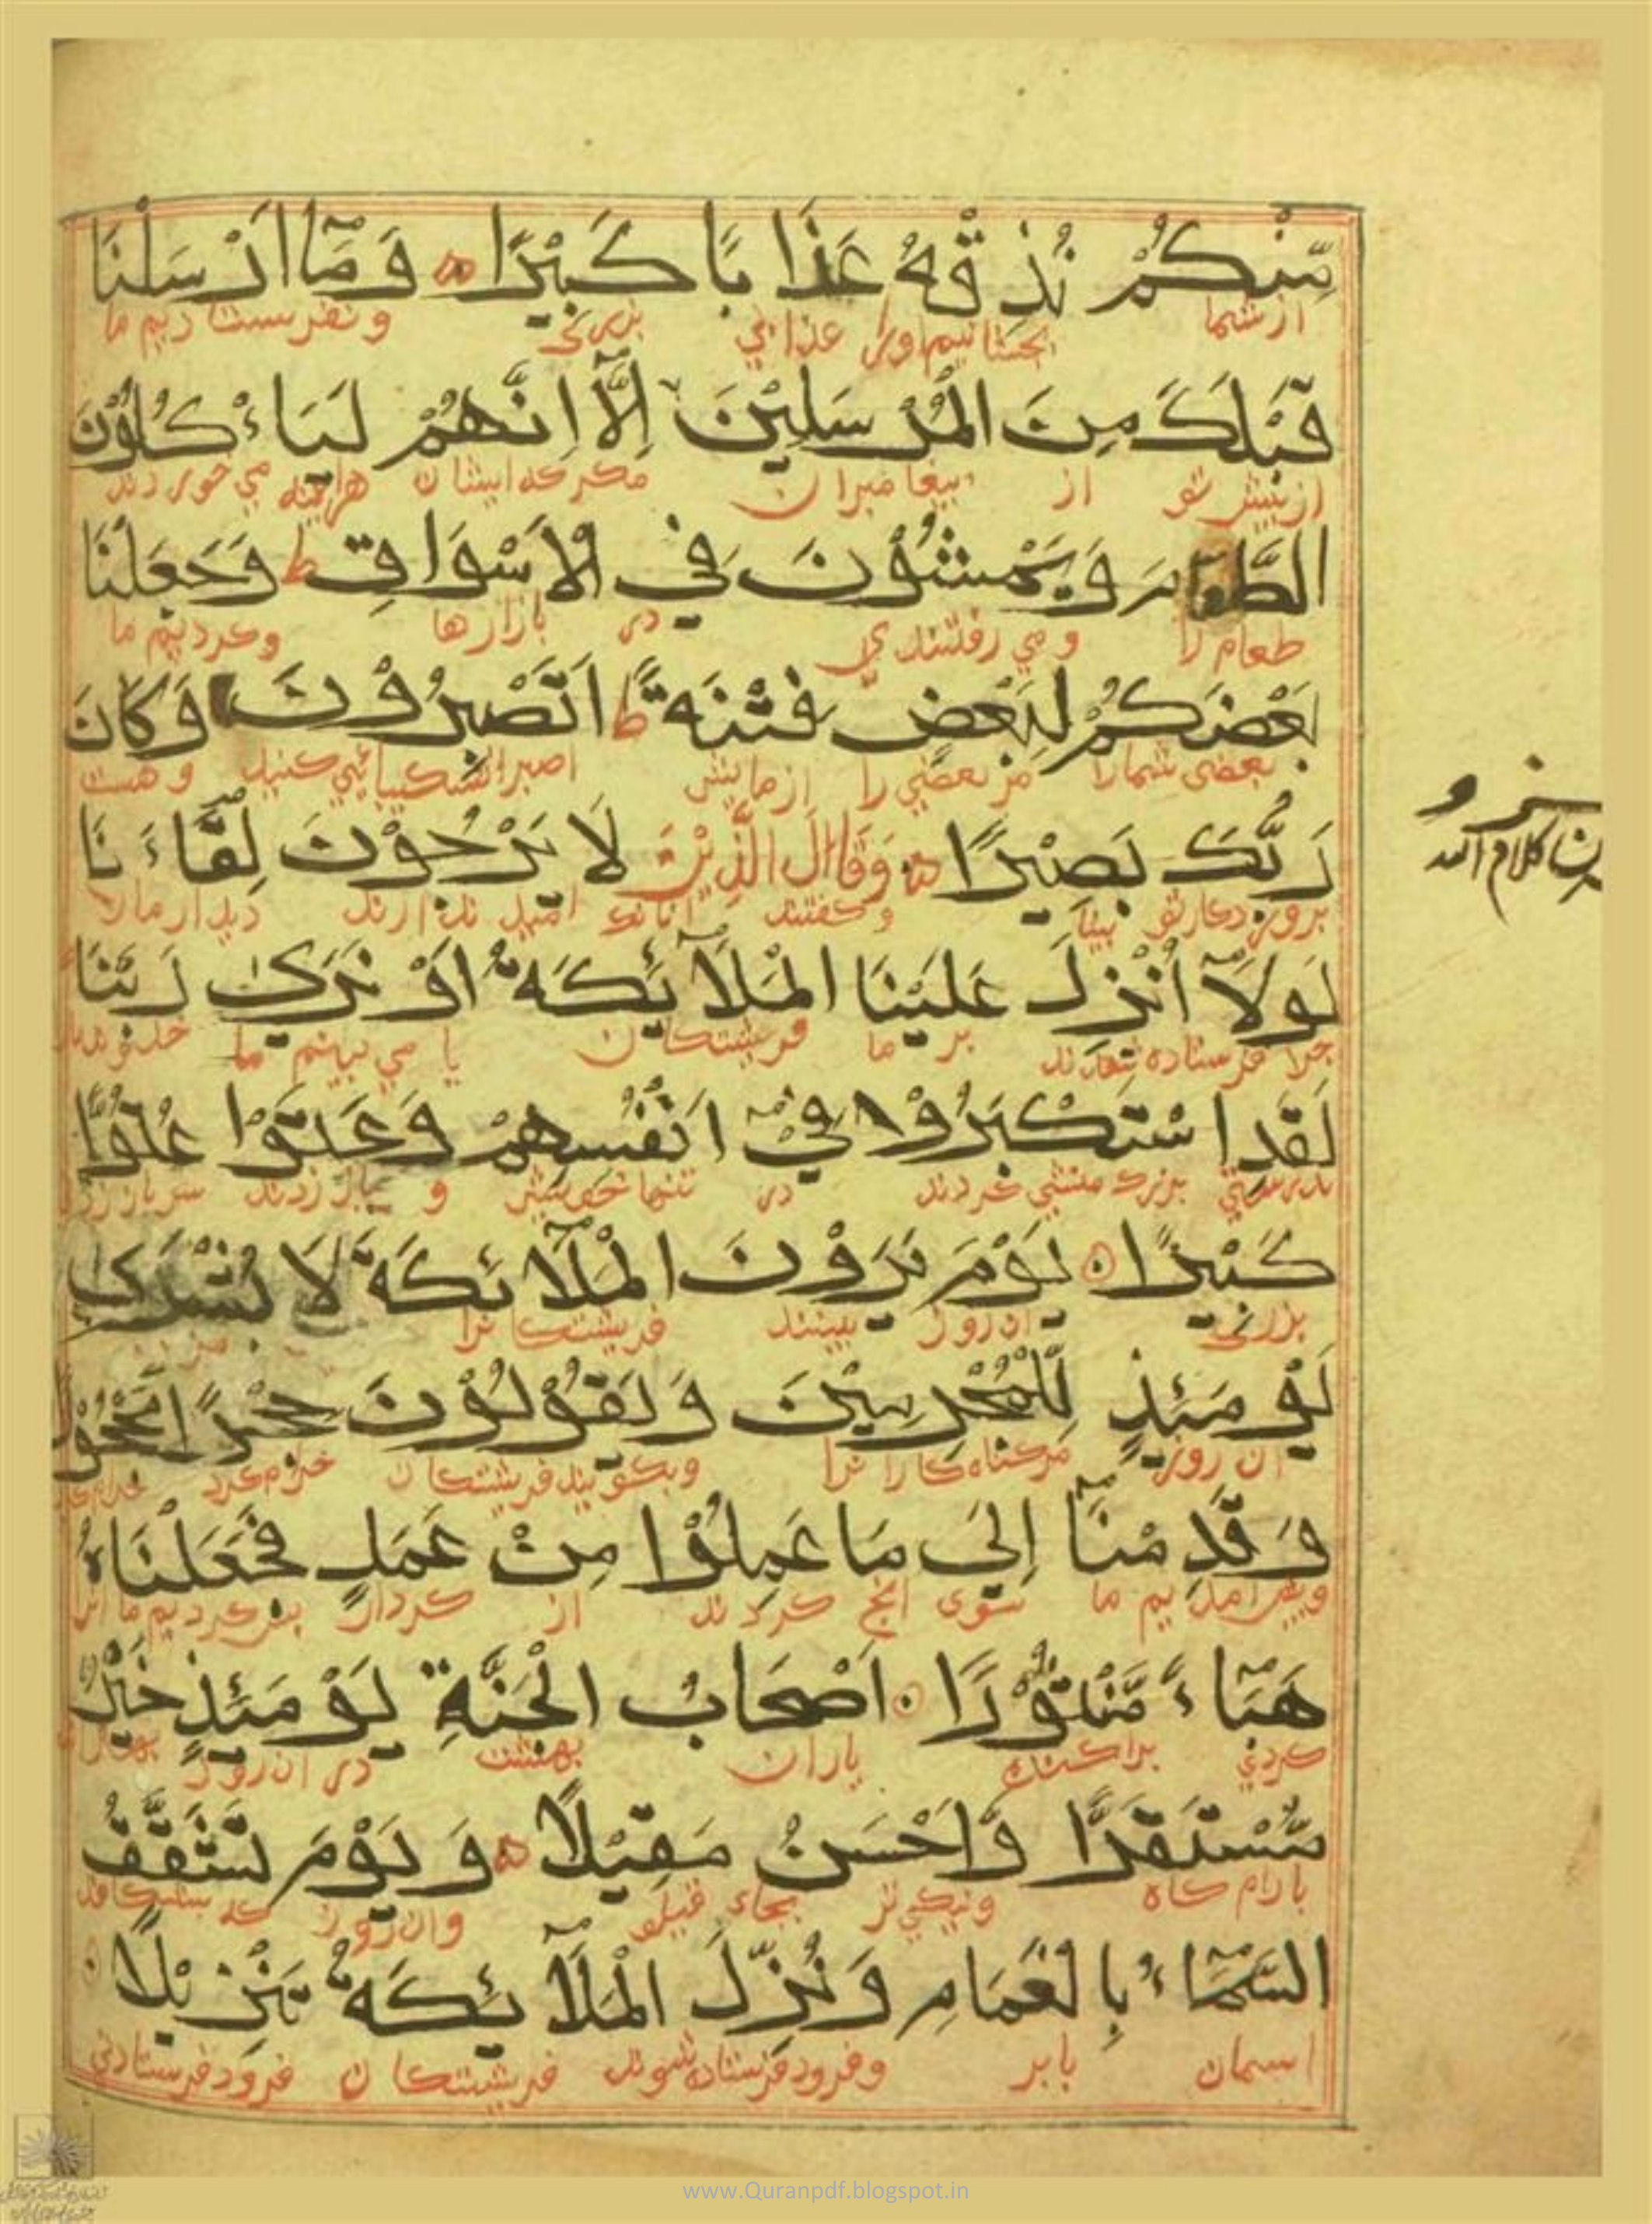 مِّنْكُمْ نُذِقْهُ عَذَابًا كَبِيْرًا وَمَآ اَرْسَلْنَا
از شما بچشانیم اورا عذابی بزرگ و نفرستادیم ما
قَبْلَكَ مِنَ الْمُرْسَلِيْنَ اِلَّآ اِنَّهُمْ لَيَاءْكُلُوْنَ
از پیش تو از پیغامبران مکر که ایشان هراینه می خوردند
الطَّعَامَ وَيَمْشُوْنَ فِي الْاَسْوَاقِ ط وَجَعَلْنَا
طعام را و می رفتندی در بازارها وکردیم ما
بَعْضَكُمْ لِبَعْضٍ فِتْنَةً ط اَتَصْبِرُوْنَ وَكَانَ
بعضی شمارا مر بعضی را ازمایش وهست
رَبُّكَ بَصِيْرًا وَقَالَ الَّذِيْنَ لَا يَرْجُوْنَ لِقَآءَنَا
بروردکار تو بینا وکفتند انانک امید ندارند دیدار مارا
لَوْلَآ اُنْزِلَ عَلَيْنَا الْمَلَآئِكَةُ اَوْ نَرٰى رَبَّنَا
جرا فرستاده بر ما فریشتکان یا می بینم ما
لَقَدِ اسْتَكْبَرُوْا فِيْٓ اَنْفُسِهِمْ وَعَتَوْا عُتُوًّا
بزرک منشی کردند در تنها خویش و
كَبِيْرًا يَوْمَ يَرَوْنَ الْمَلَآئِكَةَ لَا بُشْرٰى
بزرکی ان روز ببینند فریشتکانرا
يَوْمَئِذٍ لِّلْمُجْرِمِيْنَ وَيَقُوْلُوْنَ حِجْرًا مَّحْجُوْرًا
ان روز مرکناه کارانرا وبکویند فریشتکان حرام کرد
وَقَدِمْنَآ اِلٰى مَا عَمِلُوْا مِنْ عَمَلٍ فَجَعَلْنَاهُ
ما سوی انچ کردند از کردار بس کردیم ما انرا
هَبَآءً مَّنْثُوْرًا اَصْحَابُ الْجَنَّةِ يَوْمَئِذٍ خَيْرٌ
کردی براکنده یاران بهشت در ان روز
مُّسْتَقَرًّا وَّاَحْسَنُ مَقِيْلًا وَيَوْمَ تَشَقَّقُ
بارام کاه ونیکی تر بجاء وان روز که
السَّمَآءُ بِالْغَمَامِ وَنُزِّلَ الْمَلَآئِكَةُ تَنْزِيْلًا
اسمان بابر وفرود فرستاده شوند فریشتکان فرود فرستادنی
کلام الله
www.Quranpdf.blogspot.in